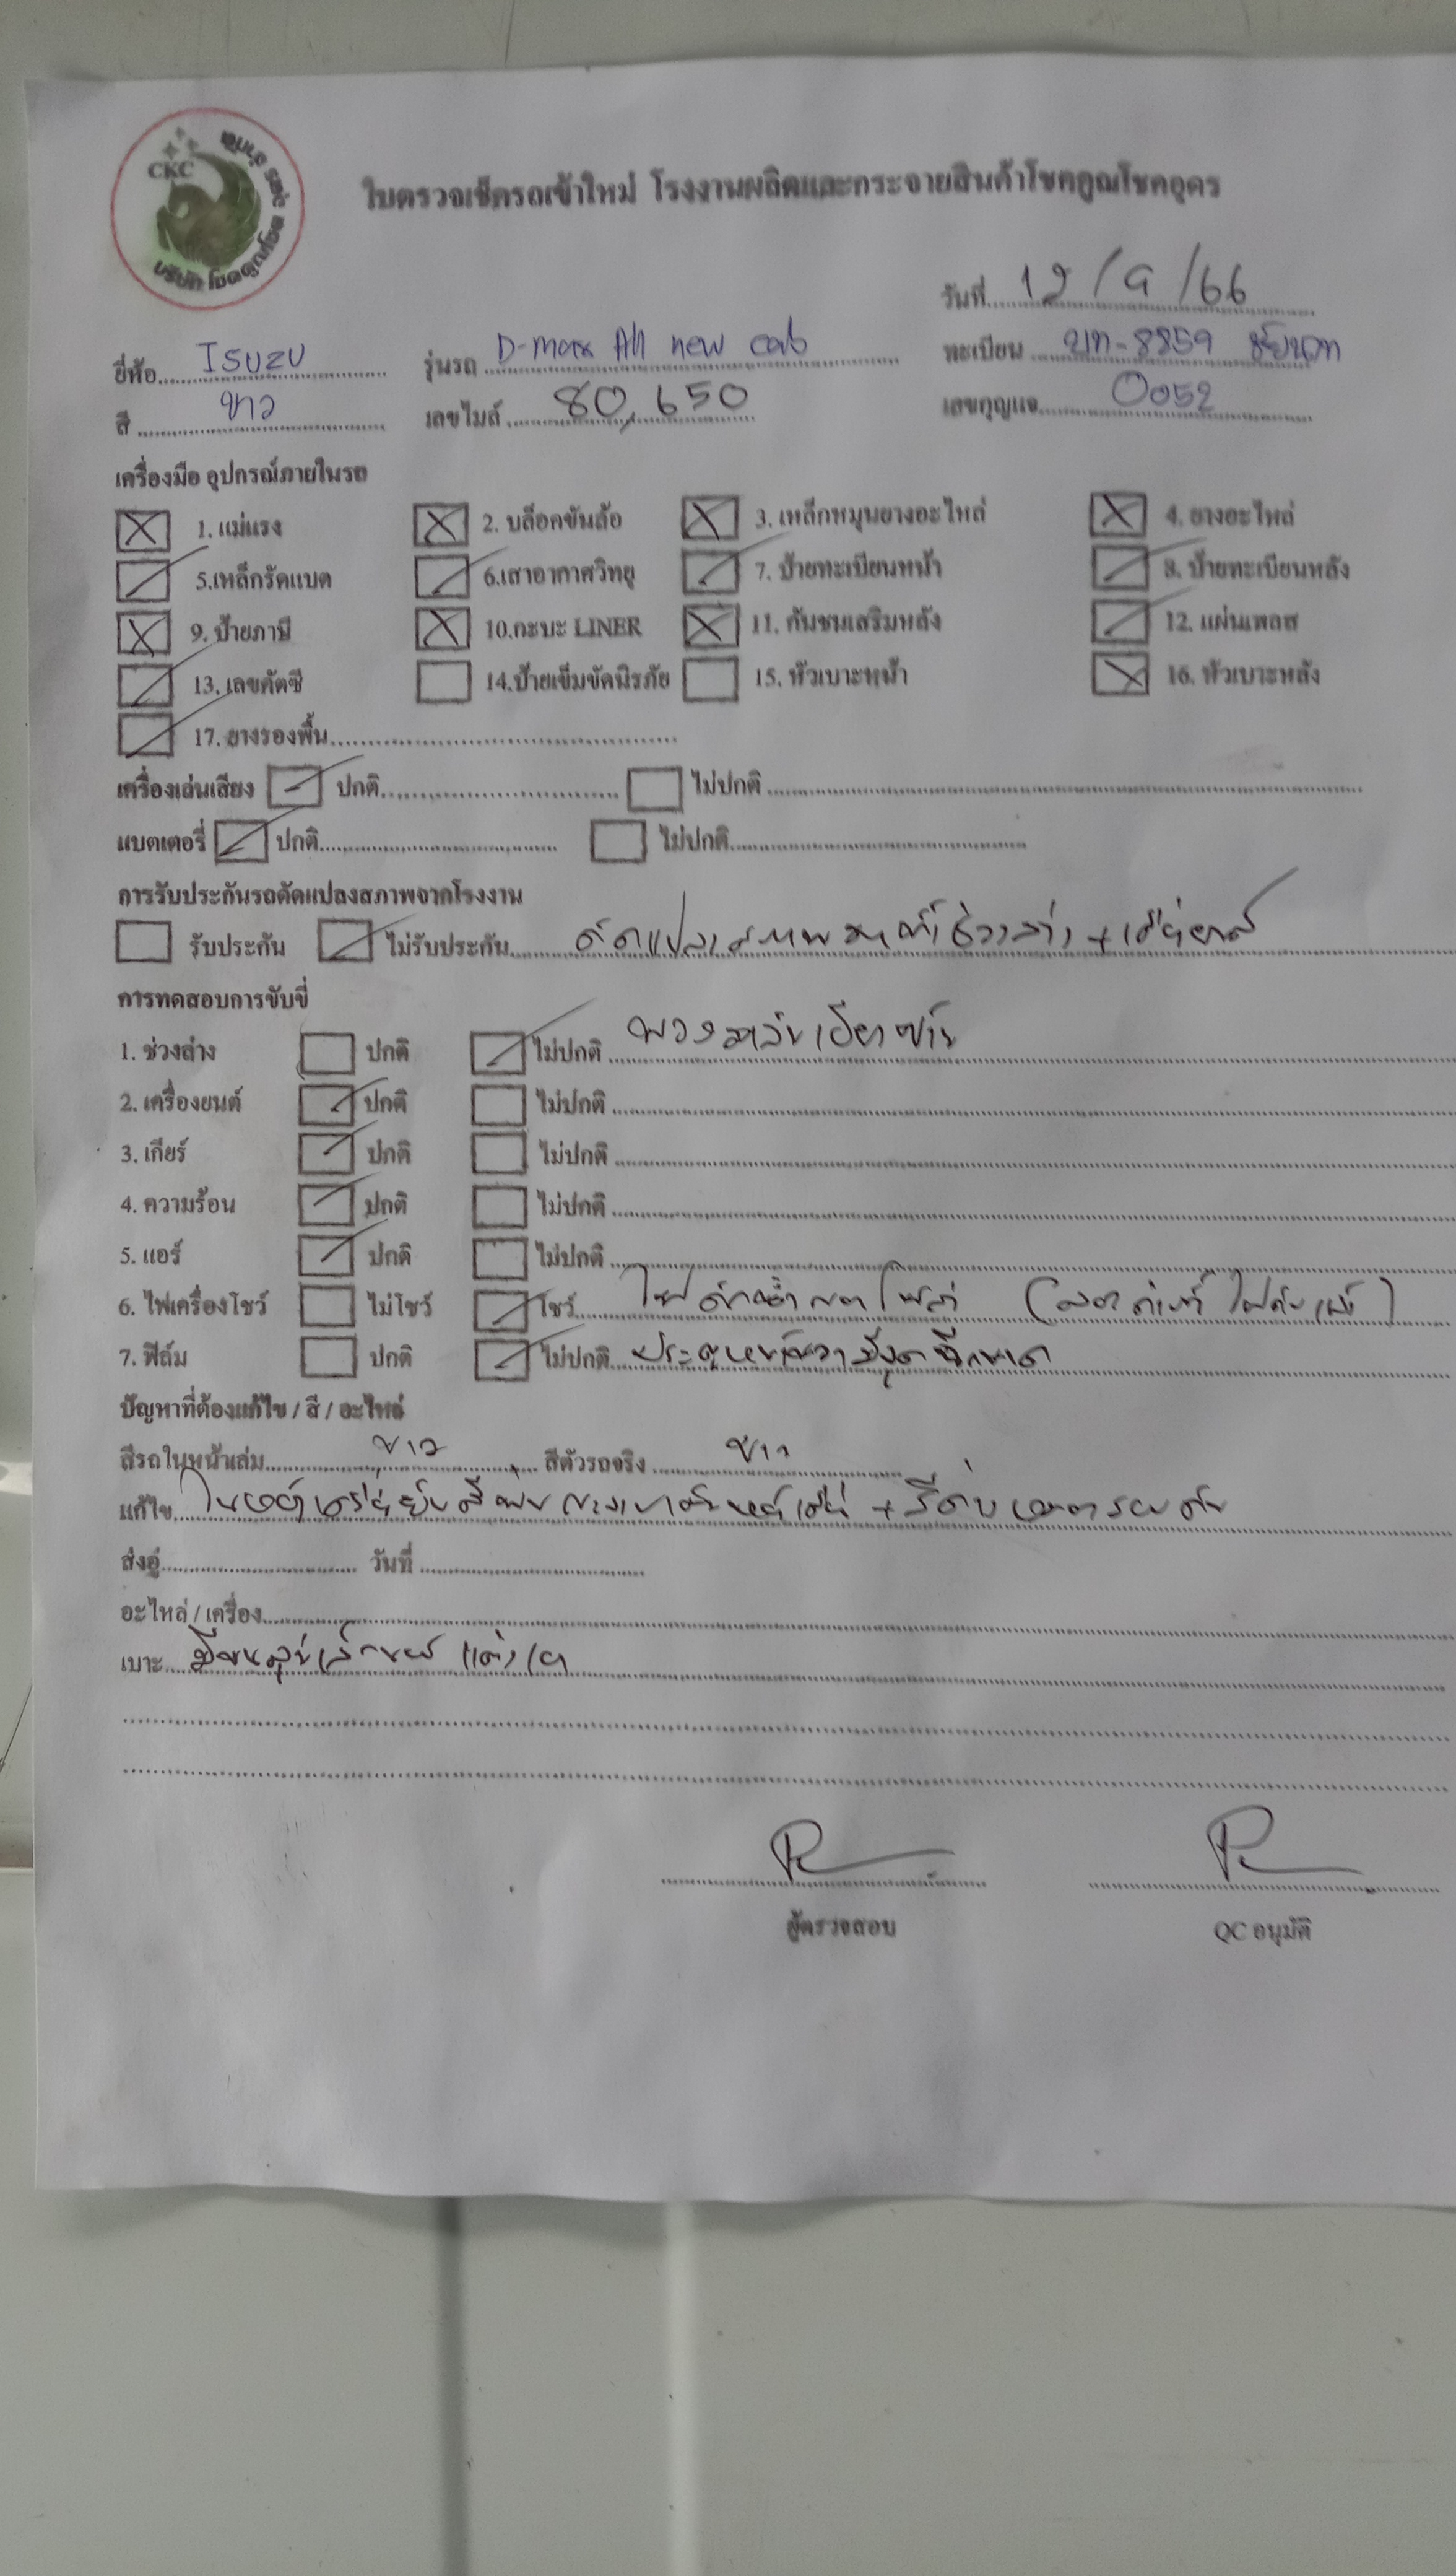 CKC
บริษัท โชคคูณโชค จำกัด
ใบตรวจเช็ครถเข้าใหม่ โรงงานผลิตและกระจายสินค้าโชคคูณโชคอุดร
วันที่ 12/9/66
ยี่ห้อ ISUZU รุ่นรถ D-max All new cab ทะเบียน 8859 ชัยนาท
สี ขาว เลขไมล์ 80,650 เลขกุญแจ 0052
เครื่องมือ อุปกรณ์ภายในรถ
1. แม่แรง 2. บล็อคขันล้อ 3. เหล็กหมุนยางอะไหล่ 4. ยางอะไหล่
5.เหล็กรัดแบต 6.เสาอากาศวิทยุ 7. ป้ายทะเบียนหน้า 8. ป้ายทะเบียนหลัง
9. ป้ายภาษี 10.กะบะ LINER 11. กันชนเสริมหลัง 12. แผ่นเพลส
13. เลขคัตซี 14.ป้ายเข็มขัดนิรภัย 15. หัวเบาะหน้า 16. หัวเบาะหลัง
17. ยางรองพื้น
เครื่องเล่นเสียง ปกติ ไม่ปกติ
แบตเตอรี่ ปกติ ไม่ปกติ
การรับประกันรถดัดแปลงสภาพจากโรงงาน
รับประกัน ไม่รับประกัน
การทดสอบการขับขี่
1. ช่วงล่าง ปกติ ไม่ปกติ พวงมาลัยเอียงซ้าย
2. เครื่องยนต์ ปกติ ไม่ปกติ
3. เกียร์ ปกติ ไม่ปกติ
4. ความร้อน ปกติ ไม่ปกติ
5. แอร์ ปกติ ไม่ปกติ
6. ไฟเครื่องโชว์ ไม่โชว์ โชว์
7. ฟิล์ม ปกติ ไม่ปกติ
ปัญหาที่ต้องแก้ไข / สี / อะไหล่
สีรถในหน้าเล่ม ขาว สีตัวรถจริง ขาว
แก้ไข
ส่งอู่ วันที่
อะไหล่ / เครื่อง
เบาะ
ผู้ตรวจสอบ QC อนุมัติ